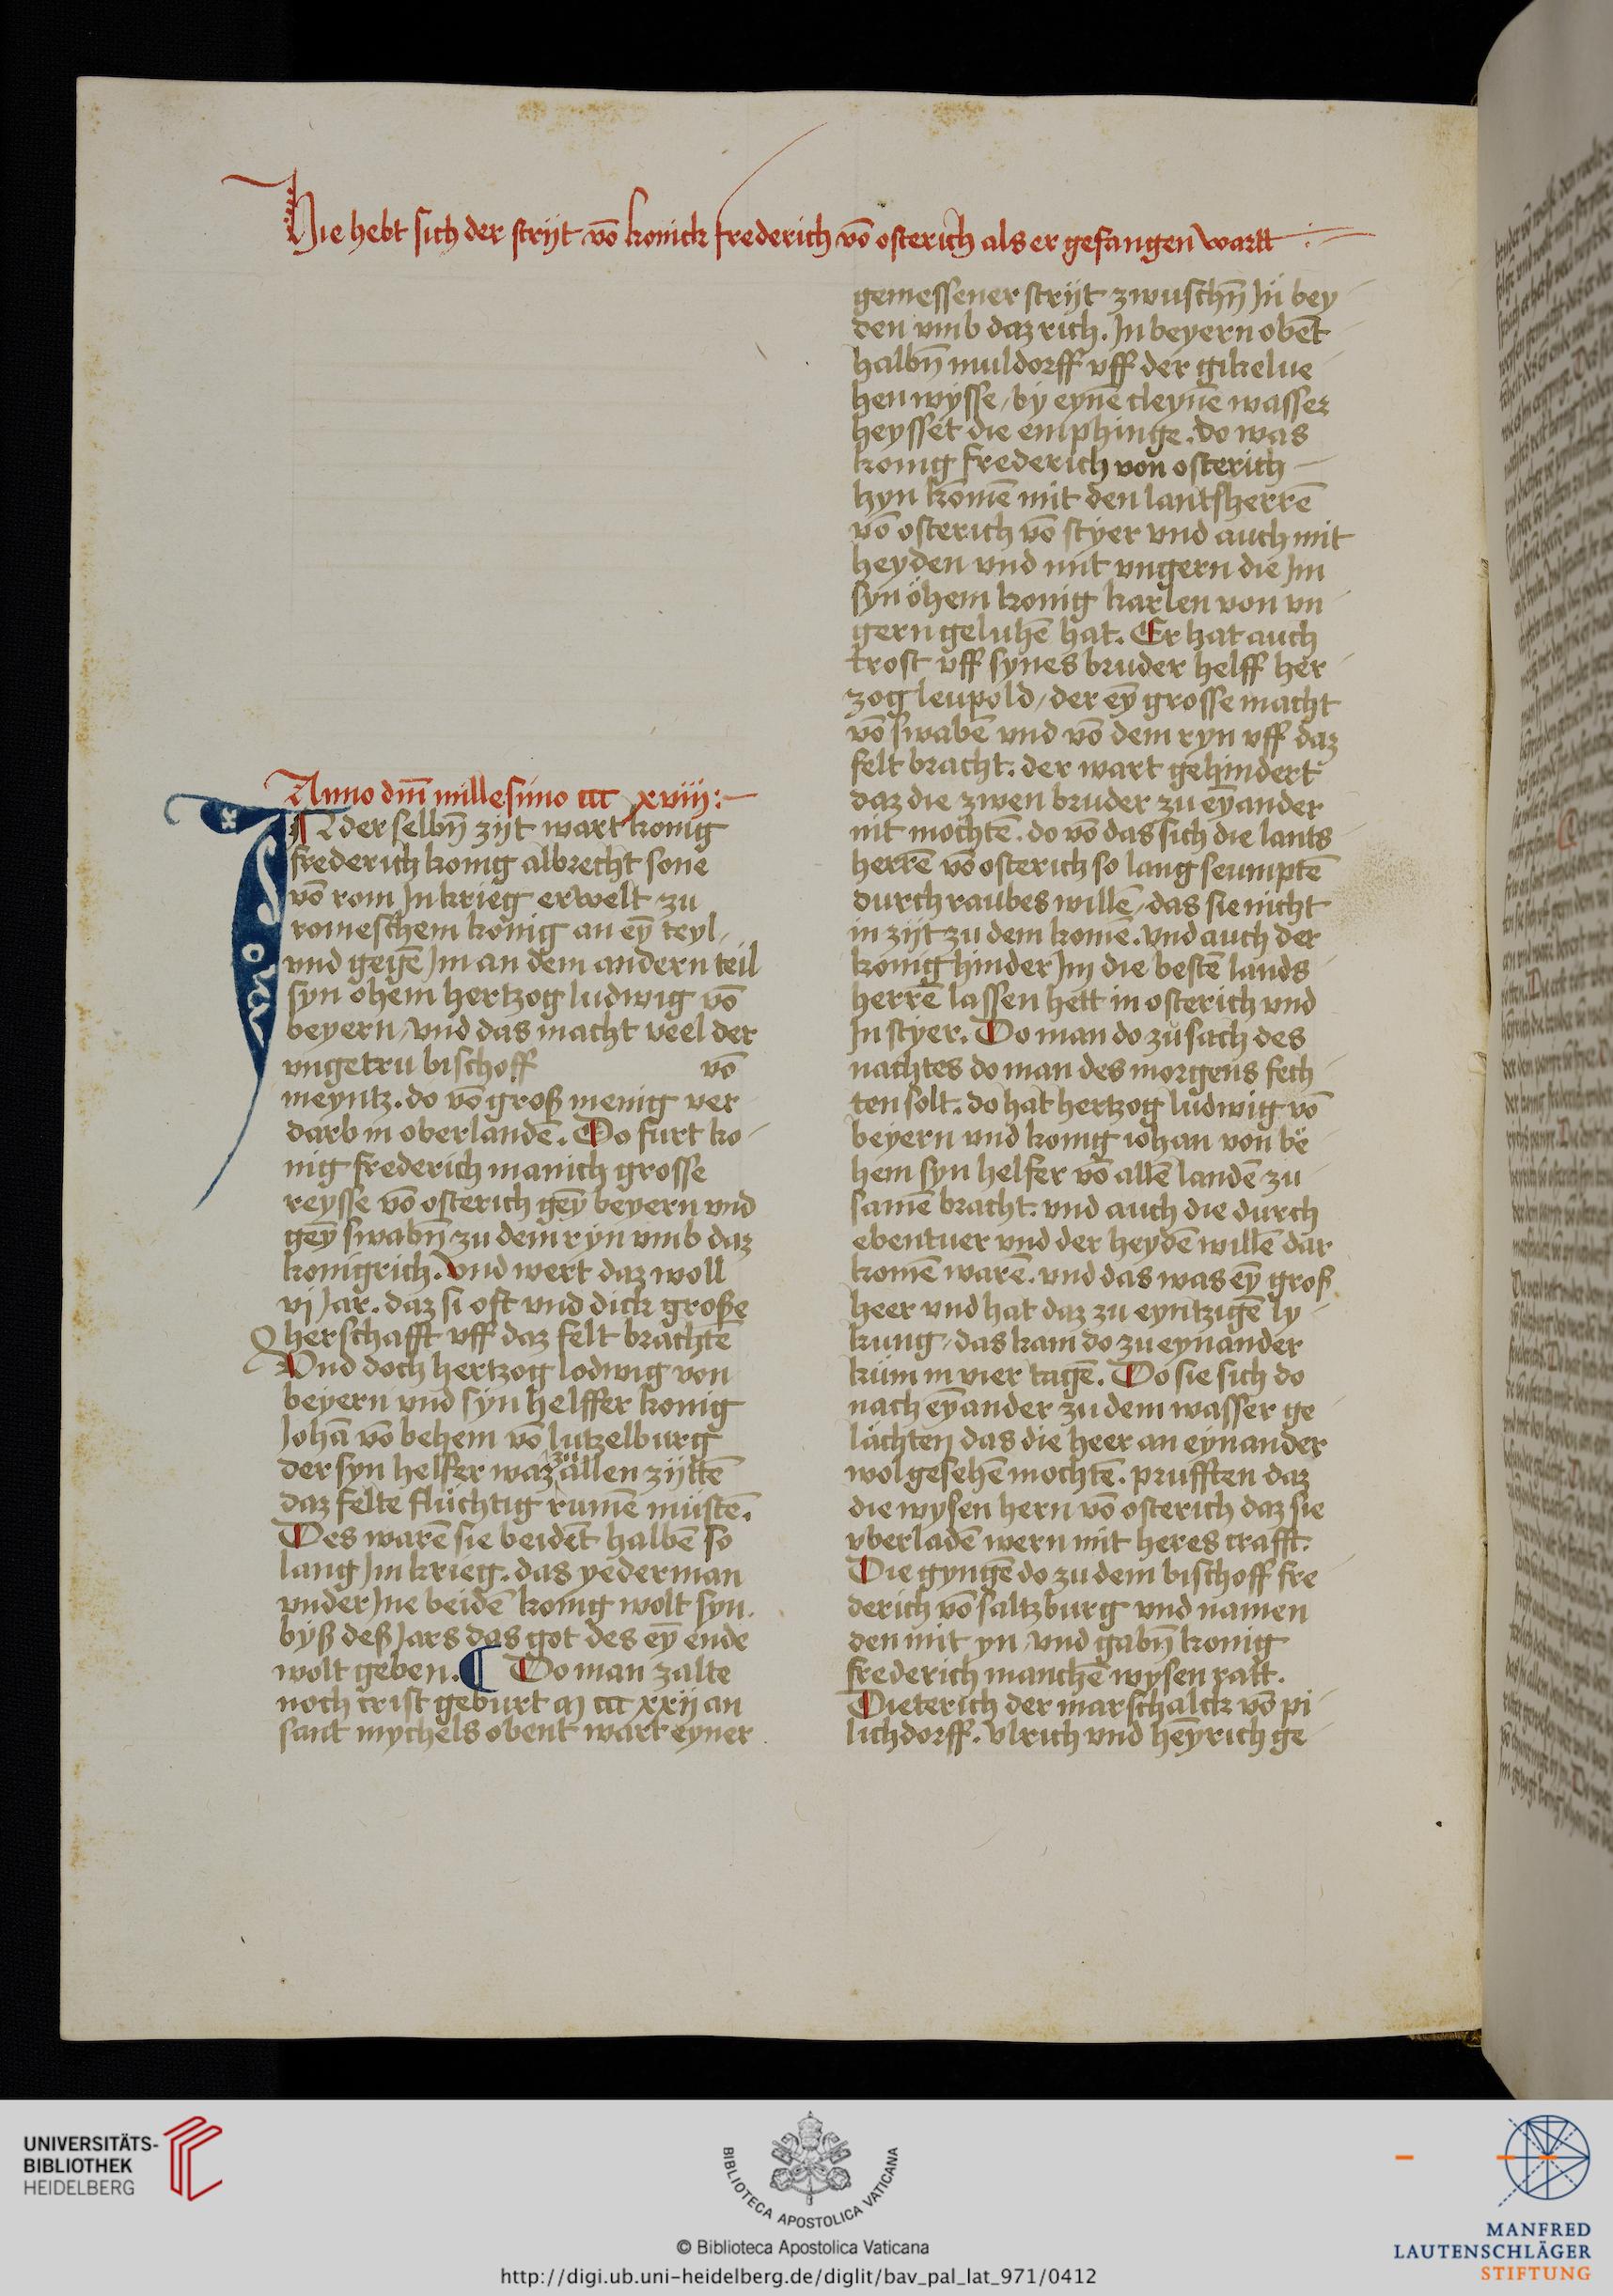 Hie hebt sich der strijt vō konick frederich vō osterich als er gefangen wartt
Anno dn̄i millesimo ccc xviij:
IN der selbn̄ zijt wart konig
frederich konig albrecht sone
vō rom Jn krieg erwelt zu
romeschem konig an eȳ teyl,
vnd gegē Jm an dem andern teil
syn ohem hertzog ludwig vō
beyern, vnd das macht veel der
vngetru bischoff vō
meyntz. do vō groß menig ver
darb in oberlandē. Do furt ko
nig frederich manich grosse
reysse vō osterich geȳ beyern vnd
geȳ swabn̄ zu dem ryn vmb daz
konigrich. vnd wert daz woll
vj Jar. daz si oft vnd dick große
herschafft vff daz felt brachtē
Vnd doch hertzog lodwig von
beyern vnd syn helffer konig
Johā vō behem vō lutzelburg
der syn helfer waz zu allen zijttē
daz felte fluchtig rumē mustē.
Des warē sie beidēt halbē so
lang Jm krieg. das yederman
vnder Jne beidē konig wolt syn.
byß deß Jars das got des eȳ ende
wolt geben. ¶ Do man zalte
noch crist geburt M ccc xxij an
sant mychels obent wart eyner
gemessener strijt zwuschn̄ Jn bey
den vmb daz rich. Jn beyern obēt
halbn̄ muldorff vff der gikelue
hen wysse, by eynē cleynē wasser
heysset die emphinge. do was
konig frederich von osterich
hyn komē mit den lantsherrē
vō osterich vō styer vnd auch mit
heyden vnd mit vngern die Jm
syn ohem konig karlen von vn
gern geluhē hat. Er hat auch
trost vff synes bruder helff her
zog leupold, der eȳ grosse macht
vō swabē vnd vō dem ryn vff daz
felt bracht. der wart gehindert
daz die zwen bruder zu eyander
nit mochtē. do vō das sich die lants
herrē vō osterich so lang seumptē
durch raubes willē, das sie nicht
in zijt zu dem kome. vnd auch der
konig hinder Jm die bestē lands
herrē lassen hett in osterich vnd
Jn styer. Do man do zu sach des
nachtes do man des morgens fech
ten solt. do hat hertzog ludwig vō
beyern vnd konig iohan von be
hem syn helfer vō allē landē zu
samē bracht. vnd auch die durch
ebentuer vnd der heydē willē dar
komē warē. vnd das was eȳ groß
heer vnd hat daz zu eyntzigē ly
kung, das kam do zu eynander
kum in vier tagē. Do sie sich do
nach eȳander zu dem wasser ge
lachten das die heer an eynander
wol gesehē mochtē. prufften daz
die wysen hern vō osterich daz sie
vberladē wern mit heres crafft.
Die gyngē do zu dem bischoff fre
derich vō saltzburg vnd namen
den mit yn, vnd gabn̄ konig
frederich manchē wysen ratt.
Dieterich der marschalck vō pi
lichdorff. vlrich vnd heȳrich ge
UNIVERSITÄTS-
BIBLIOTHEK
HEIDELBERG
BIBLIOTECA APOSTOLICA VATICANA
© Biblioteca Apostolica Vaticana
http://digi.ub.uni-heidelberg.de/diglit/bav_pal_lat_971/0412
MANFRED
LAUTENSCHLÄGER
STIFTUNG